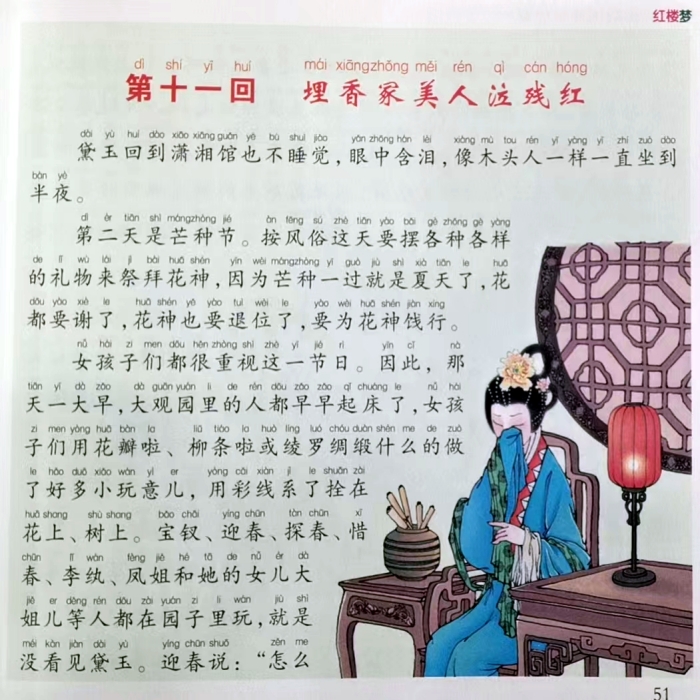 红楼梦
dì shí yī huí mái xiāngzhǒng měi rén qì cán hóng
第十一回 埋香冢美人泣残红
dài yù huí dào xiāo xiāng guǎn yě bù shuì jiào yǎn zhōng hán lèi xiàng mù tou rén yí yàng yì zhí zuò dào
黛玉回到潇湘馆也不睡觉,眼中含泪,像木头人一样一直坐到
bàn yè
半夜。
dì èr tiān shì mángzhòng jié àn fēng sú zhè tiān yào bǎi gè zhǒng gè yàng
第二天是芒种节。按风俗这天要摆各种各样
de lǐ wù lái jì bài huā shén yīn wèi mángzhòng yí guò jiù shì xià tiān le huā
的礼物来祭拜花神,因为芒种一过就是夏天了,花
dōu yào xiè le huā shén yě yào tuì wèi le yào wèi huā shén jiàn xíng
都要谢了,花神也要退位了,要为花神饯行。
nǚ hái zi men dōu hěn zhòng shì zhè yì jié rì yīn cǐ nà
女孩子们都很重视这一节日。因此,那
tiān yí dà zǎo dà guān yuán li de rén dōu zǎo zǎo qǐ chuáng le nǚ hái
天一大早,大观园里的人都早早起床了,女孩
zi men yòng huā bàn la liǔ tiáo la huò líng luó chóu duàn shén me de zuò
子们用花瓣啦、柳条啦或绫罗绸缎什么的做
le hǎo duō xiǎo wán yì er yòng cǎi xiàn jì le shuān zài
了好多小玩意儿,用彩线系了拴在
huā shang shù shang bǎo chāi yíng chūn tàn chūn xī
花上、树上。宝钗、迎春、探春、惜
chūn lǐ wán fèng jiě hé tā de nǚ ér dà
春、李纨、凤姐和她的女儿大
jiě er děng rén dōu zài yuán zi li wán jiù shì
姐儿等人都在园子里玩,就是
méi kàn jiàn dài yù yíng chūn shuō zěn me
没看见黛玉。迎春说:“怎么
51